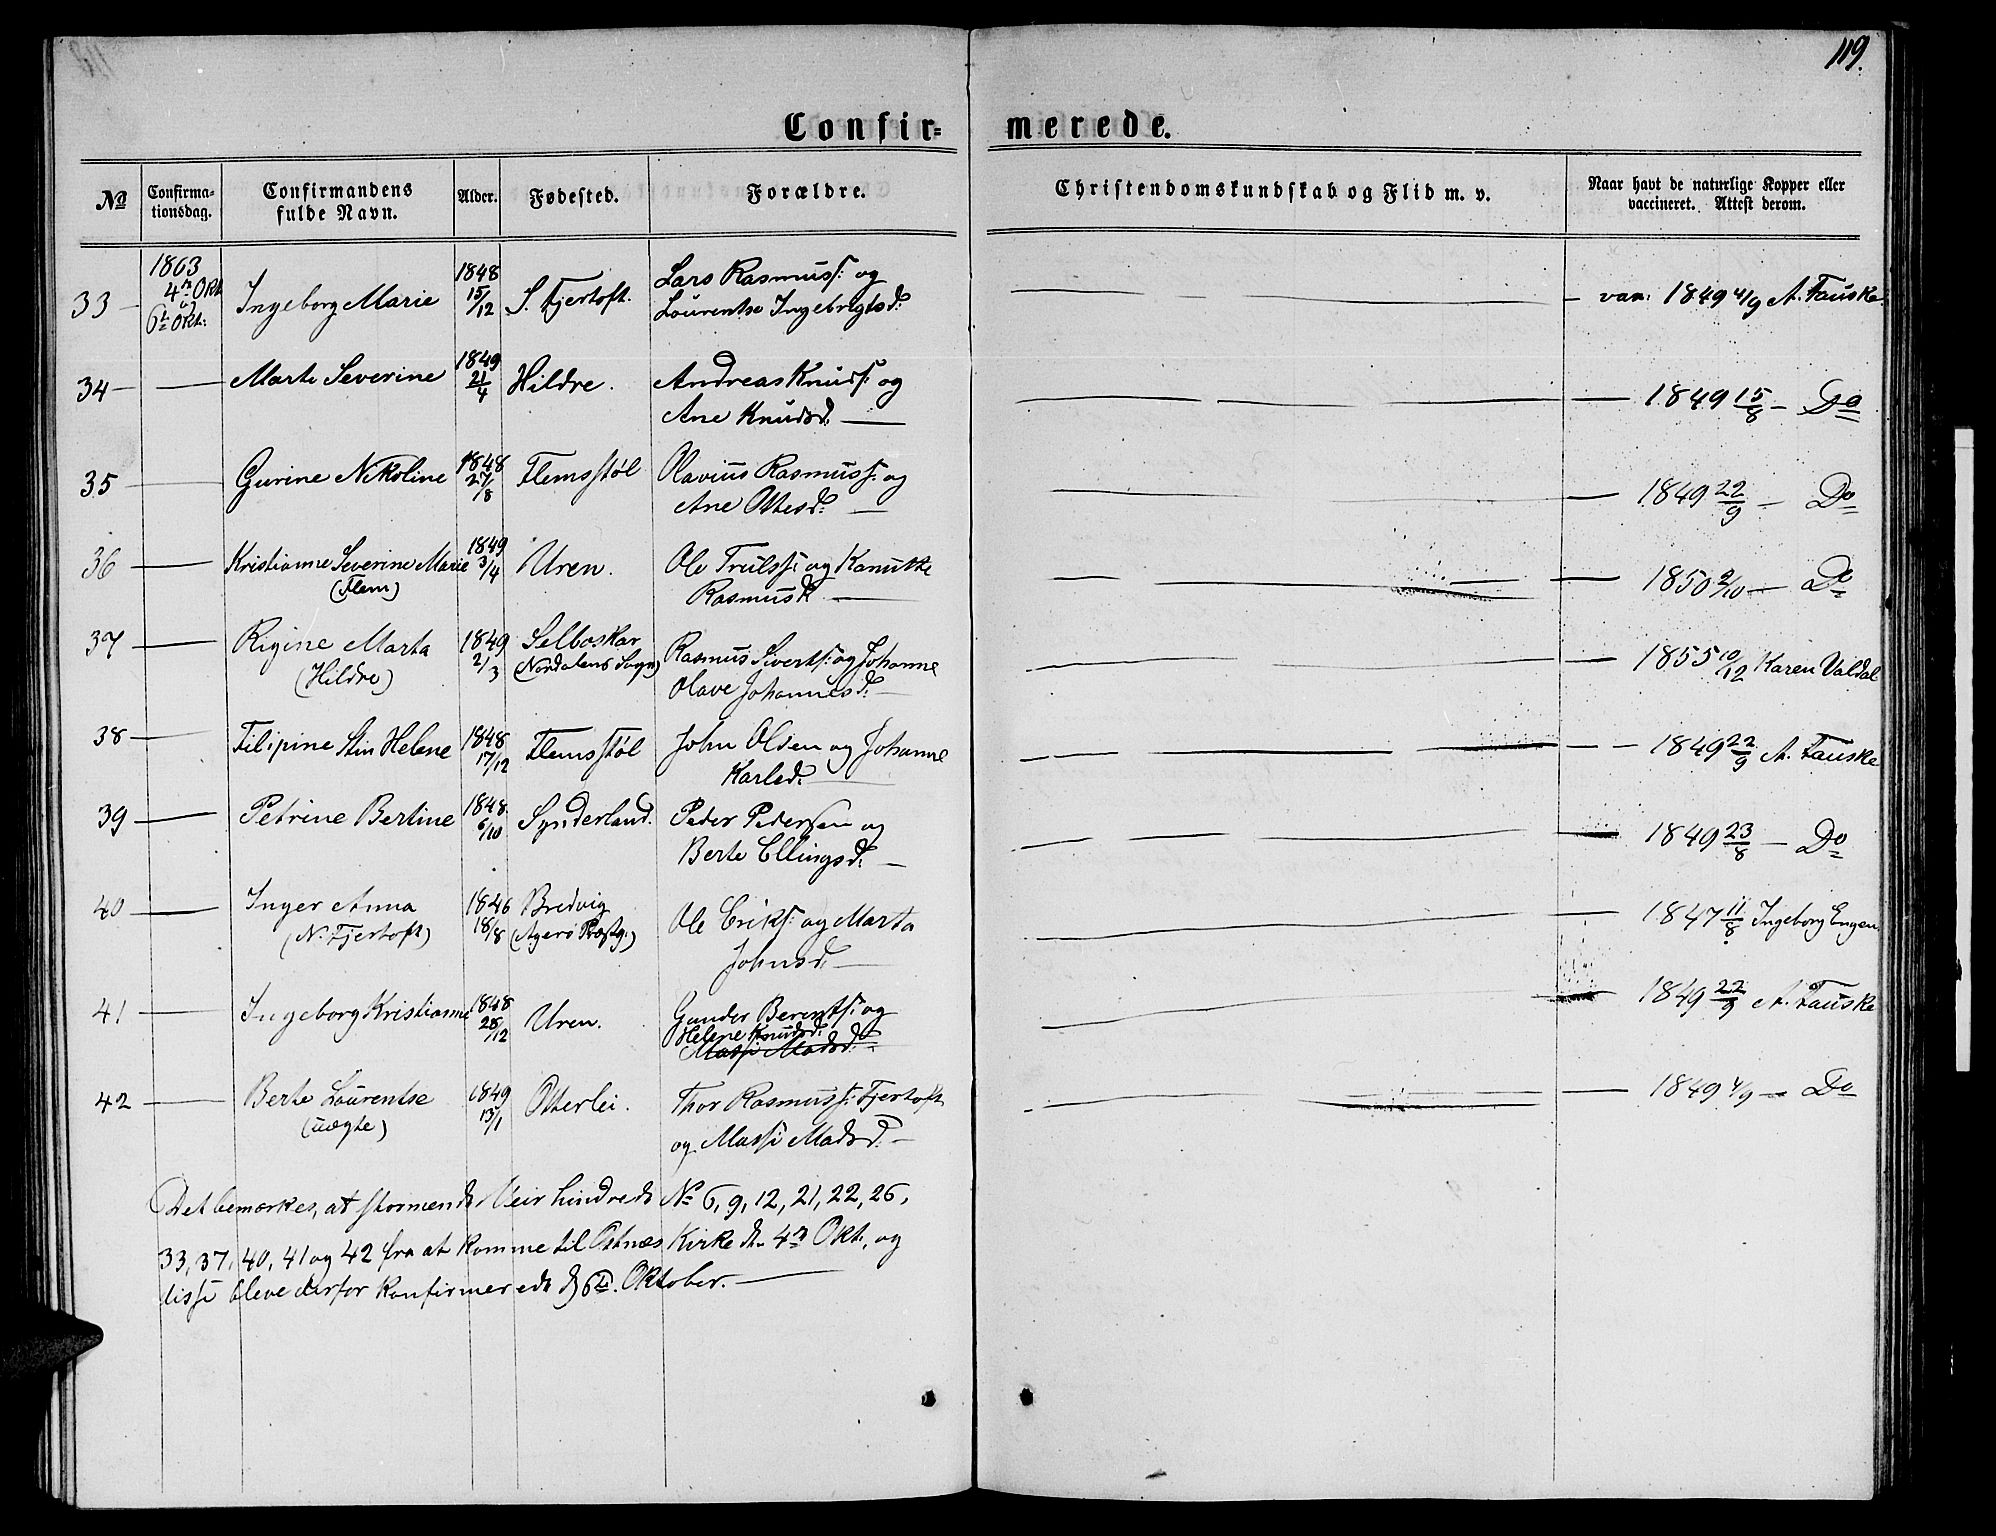 119.
Confir=
merede.
No
Confirma-
tionsdag.
Confirmandens
fulde Navn.
Alder.
Fødested.
Forældre.
Christendomskundskab og Flid m. v.
Naar havt de naturlige Kopper eller
vaccineret. Attest derom.
33 — 1863 4de Okt. og 6te Okt: Ingeborg Marie 1848 15/12 S. Fjertoft. Lars Rasmuss: og
Lourentse Ingebrigtsd: — vac: 1849 4/9 A. Fauske
34 — Marte Severine 1849 21/4 Hildre. Andreas Knuds: og
Ane Knudsd: — 1849 15/8 — Do
35 — Gurine Nikoline 1848 27/8 Flemsstøl Olavius Rasmuss: og
Ane Ottesd: — 1849 22/9 — Do
36 — Kristianne Severine Marie 1849 3/4 Uren. Ole Trulss: og Kanutte
(Flem) Rasmusd. — 1850 9/10 — Do
37 — Rigine Marta 1849 2/3 Selboskar Rasmus Sivertss: og Johanne
(Hildre) (Nordalens Sogn) Olave Johannesd: — 1855 10/12 Karen Valdal
38 — Filipine Stin Helene 1848 17/12 Flemsstøl John Olsen og Johanne
Karlsd: — 1849 22/9 A. Fauske
39 — Petrine Bertine 1848 6/10 Synderland. Peder Pedersen og
Berte Ellingsd: — 1849 23/8 — Do
40 — Inger Anna 1846 18/8 Bredvig Ole Eriks: og Marta
(N. Fjertoft) (Agerø Præstg:) Johnsd: — 1847 11/8 Ingeborg Engen
41 — Ingeborg Kristianne 1848 28/12 Uren. Gunder Berentss: og
Helene Knudsd:
Massi Madsd: 1849 22/9 A. Fauske
42 — Berte Lourentse 1849 13/1 Otterlei. Thor Rasmuss: Fjertoft
(uægte) og Massi Madsd: — 1849 4/9 — Do
Det bemærkes, at stormende Veir hindrede No 6, 9, 12, 21, 22, 26,
33, 37, 40, 41 og 42 fra at komme til Østnæs Kirke d. 4de Okt., og
disse bleve derfor konfirmerede d. 6te. Oktober. —